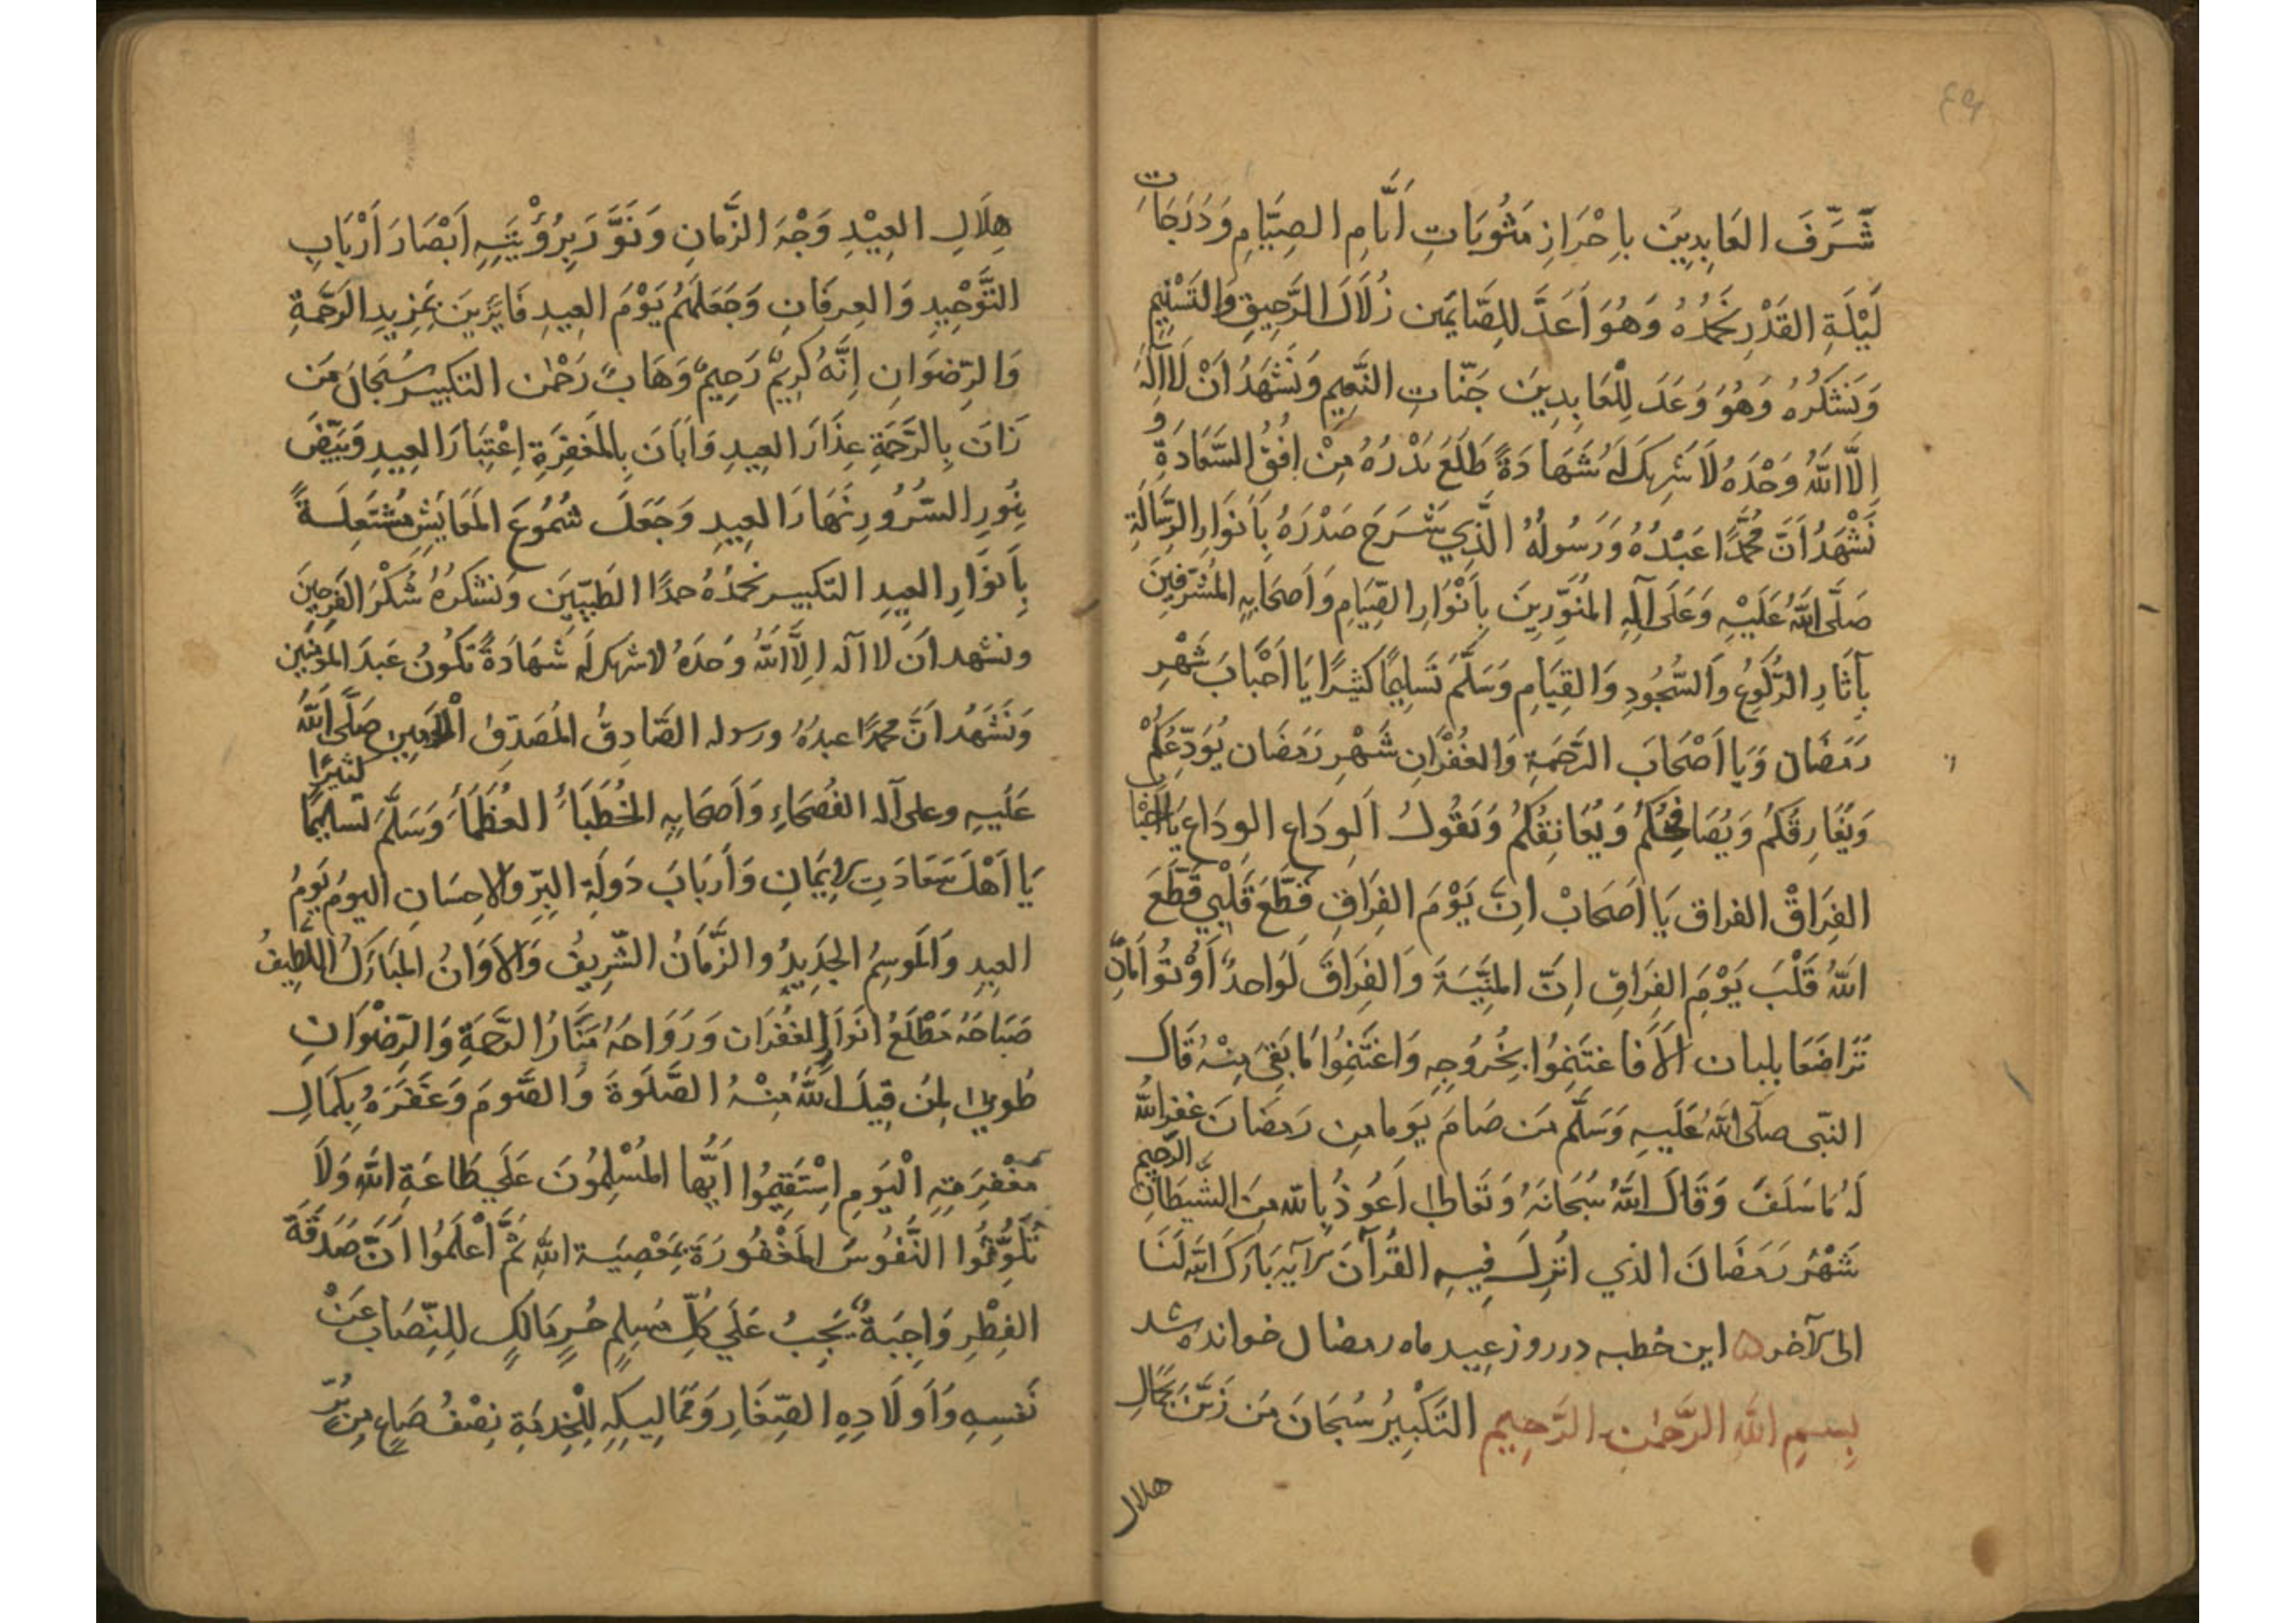 ٤٩
شَرَّفَ العَابِدِينَ بِاِحْرَازِ مَثُوبَاتِ اَيَّامِ الصِّيَامِ وَدَرَجَاتِ
لَيْلَةِ القَدْرِ نَحْمَدُهُ وَهُوَ اَعَدَّ لِلصَّائِمِينَ زُلَالَ الرَّحِيقِ وَالتَّسْنِيمِ
وَنَشْكُرُهُ وَهُوَ وَعَدَ لِلْعَابِدِينَ جَنَّاتِ النَّعِيمِ وَنَشْهَدُ اَنْ لَا اِلٰهَ
اِلَّا اللّٰهُ وَحْدَهُ لَا شَرِيكَ لَهُ شَهَادَةً طَلَعَ بَدْرُهُ مِنْ اُفُقِ السَّعَادَةِ وَ
نَشْهَدُ اَنَّ مُحَمَّدًا عَبْدُهُ وَرَسُولُهُ الَّذِي شَرَحَ صَدْرَهُ بِاَنْوَارِ الرِّسَالَةِ
صَلَّى اللّٰهُ عَلَيْهِ وَعَلَى آلِهِ المُنَوَّرِينَ بِاَنْوَارِ الصِّيَامِ وَاَصْحَابِهِ المُشَرَّفِينَ
بِآثَارِ الرُّكُوعِ وَالسُّجُودِ وَالقِيَامِ وَسَلَّمَ تَسْلِيمًا كَثِيرًا يَا اَحْبَابَ شَهْرِ
رَمَضَان وَيَا اَصْحَابَ الرَّحْمَةِ وَالغُفْرَانِ شَهْرِ رَمَضَان يُوَدِّعُكُمْ
وَيُفَارِقُكُمْ وَيُصَافِحُكُمْ وَيُعَانِقُكُمْ وَيَقُولُ اَلوِدَاع الوِدَاع يَا اَحْبَاب
الفِرَاقْ الفراق يَا اَصْحَابْ اِنَّ يَوْمَ الفِرَاقِ قَطَّعَ قَلْبِي قَطَّعَ
اللّٰهُ قَلْبَ يَوْمَ الفِرَاقِ اِنَّ المَنِيَّةَ وَالفِرَاقَ لَوَاحِدٌ اَوْ تُوْاَمَانِ
تَرَاضَعَا بلبان اَلَا فَاغْتَنِمُوا بِخُرُوجِهِ وَاغْتَنِمُوا مَا بَقِيَ مِنْهُ قَالَ
النَّبِى صَلَّى اللّٰهُ عَلَيْهِ وَسَلَّم مَن صَامَ يَوما مِن رَمَضَانَ غَفَرَ اللّٰهُ
لَهُ مَا سَلَفَ وَقَالَ اللّٰهُ سُبْحَانَهُ وَتَعَالٰى اَعُوذُ بِاللّٰه مِنَ الشَّيْطَانِ الرَّجِيمِ
شَهْرُ رَمَضَانَ الَّذِي اُنْزِلَ فِيهِ القُرْآنَ الآيَه بَارَكَ اللّٰه لَنَا
الى الآخر ۵ اين خطبه در روز عيد ماه رمضان خوانده شد
بِسْمِ اللّٰهِ الرَّحْمٰنِ الرَّحِيمِ التَّكْبِيرُ سُبْحَانَ مَن زَيَّنَ بِجَمَالِ
هلال
هِلَالِ العِيْدِ وَجْهَ الزَّمَانِ وَنَوَّرَ بِرُؤْيَتِهِ اَبْصَارَ اَرْبَابِ
التَّوْحِيدِ وَالعِرفَانِ وَجَعَلَهُمْ يَوْمَ العِيدِ فَايِزِينَ بِمَزِيدِ الرَّحْمَةِ
وَالرِّضْوَانِ اِنَّهُ كَرِيمٌ رَحِيمٌ وَهَابٌ رَحْمٰن التكبير سُبْحَانَ مَن
زَانَ بِالرَّحْمَةِ عِذَارَ العِيدِ وَاَبَانَ بِالمَغْفِرَةِ اِعْتِبَارَ العِيدِ وَبَيَّضَ
بِنُورِ السُّرُورِ نَهَارَ العِيدِ وَجَعَلَ شُمُوعَ المَعَايِشِ مُشْتَعِلَةً
بِاَنوَارِ العِيدِ التكبير نَحْمَدُهُ حمدًا الطَيِّبِينَ وَنَشْكُرُهُ شُكْرَ الفَرِحِينَ
ونشهد اَن لا اله اِلَّا اللّٰهُ وَحدَهُ لا شريك له شَهَادَةً تَكُونُ عَبدَ المؤمنين
وَنَشْهَدُ اَنَّ مُحَمَّدًا عبدُهُ ورسوله الصَّادِقُ المُصَدَّقُ الْاَمِين صَلَّى اللّٰهُ
عَلَيهِ وعلى آله الفُصَحَاءِ وَاَصْحَابِهِ الخُطَبَاءِ العُظَمَاءِ وَسَلَّمَ تَسلِيمًا كثيرًا
يَا اَهْلَ سَعَادَتِ الاِيمَانِ وَاَربَابَ دَولَةِ البِرِّ وَالاِحسَانِ اليومُ يَومُ
العِيدِ وَالمَوسِمُ الجَدِيدُ والزَّمَانُ الشَّرِيفُ وَالاَوَانُ المُبَارَكُ اللَّطِيفُ
صَبَاحُهُ مَطْلَعُ انوَارِ الغُفْرَان وَرَوَاحُهُ مَنَارُ الرَّحْمَةِ وَالرِّضْوَانِ
طُوبٰى لِمَن قَبِلَ اللّٰهُ مِنْهُ الصَّلٰوةَ وَالصَّومَ وَغَفَرَهُ بِكَمَالِ
مَغْفِرَتِهِ الْيَومِ اِسْتَقِيمُوا اَيُّهَا المُسْلِمُونَ عَلَى طَاعَةِ اللّٰهِ وَلَا
تُلَوِّثُوا النُّفُوسَ المَغْفُورَةَ بِمَعْصِيَةِ اللّٰهِ ثُمَّ اعْلَمُوا اَنَّ صَدَقَةَ
الفِطْرِ وَاجِبَةٌ يَجِبُ عَلَى كُلِّ مُسْلِمٍ حُرٍ مَالِكٍ لِلنِّصَابِ عَنْ
نَفسِهِ وَاَولَادِهِ الصِّغَارِ وَمَمَالِيكِهِ لِلْخِدْمَةِ نِصْفُ صَاعٍ مِن بُرٍّ